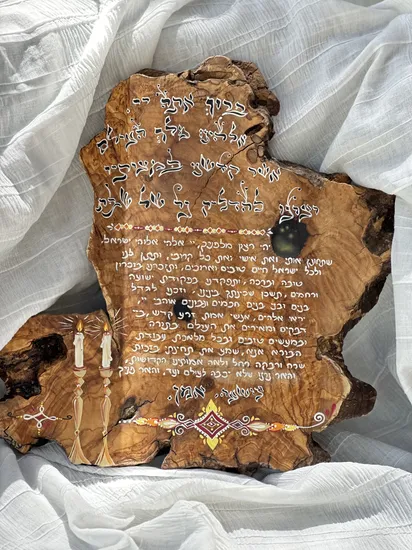 ברוך אתה יי
אלהינו מלך העולם
אשר קדשנו במצותיו
וצונו להדליק נר של שבת
יהי רצון מלפניך, יי אלהי ואלהי ישראל,
שתחונן אותי ואת אישי ואת כל קרובי, ותתן לנו
ולכל ישראל חיים טובים וארוכים, ותזכרנו בזכרון
טובה וברכה, ותפקדנו בפקודת ישועה
ורחמים, ותשכן שכינתך בינינו, וזכנו לגדל
בנים ובני בנים חכמים ונבונים אוהבי יי,
יראי אלהים, אנשי אמת, זרע קדש, ביי
דבקים ומאירים את העולם בתורה
ובמעשים טובים ובכל מלאכת עבודת
הבורא אנא, שמע את תחינתי בזכות
שרה ורבקה רחל ולאה אמותינו הקדושות,
והאר נרנו שלא יכבה לעולם ועד, והאר פניך
ונושעה אמן.